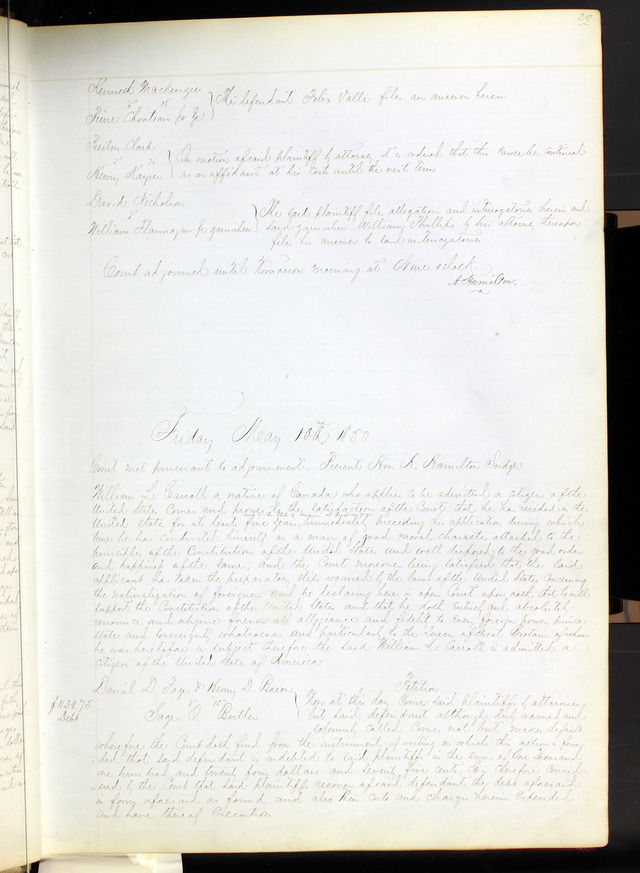 20
Kenneth Mackenzie
vs
Pierre Chouteau Jr &c
The defendant Felix Valle files an answer herein
Preston Clark
vs
Henry Harper
On motion of said plaintiff by attorney it is ordered that this cause be continued
as on affidavit at his costs until the next term
David Nicholson
vs
William Flannagan Jr garnishee
The said plaintiff files allegations and interrogatories herein and
said garnishee William Phillips by his attorney thereupon
files his answer to said interrogatories
Court adjourned until tomorrow morning at Nine oclock
A. Hamilton.
Friday May 10th 1850
Court met pursuant to adjournment. Present Hon A. Hamilton Judge
William L Carroll a native of Canada who applies to be admitted a citizen of the
United States comes and proves to the satisfaction of the Court, that he has resided in the
United States for at least five years, immediately preceding the application during which
time he has conducted himself as a man of good moral character attached to the
principles of the Constitution of the United States and well disposed to the good order
and happiness of the same, and the Court moreover being satisfied that the said
applicant has taken the preparatory steps required by the laws of the United States concerning
the naturalization of foreigners and he declaring here in open Court upon oath that he will
support the Constitution of the United States and that he doth entirely and absolutely
renounce and abjure forever all allegiance and fidelity to every foreign power prince
State and Sovereignty whatsoever and particularly to the Queen of Great Britain of whom
he was heretofore a subject therefore the said William L Carroll is admitted a
citizen of the United States of America
Daniel D. Page & Henry D. Bacon
vs
Sage O. Butler
$1124.75
Debt
Petition
Now at this day come said plaintiffs by attorney
but said defendant although duly warned and
solemnly called comes not but makes default
wherefore the Court doth find from the instrument of writing on which this action is foun-
ded that said defendant is indebted to said plaintiffs in the sum of One thousand
one hundred and twenty four dollars and seventy five cents, It is therefore consid-
ered by the Court that said plaintiffs recover of said defendant the debt aforesaid
in form aforesaid as found and also their costs and charges herein expended
and have thereof Execution